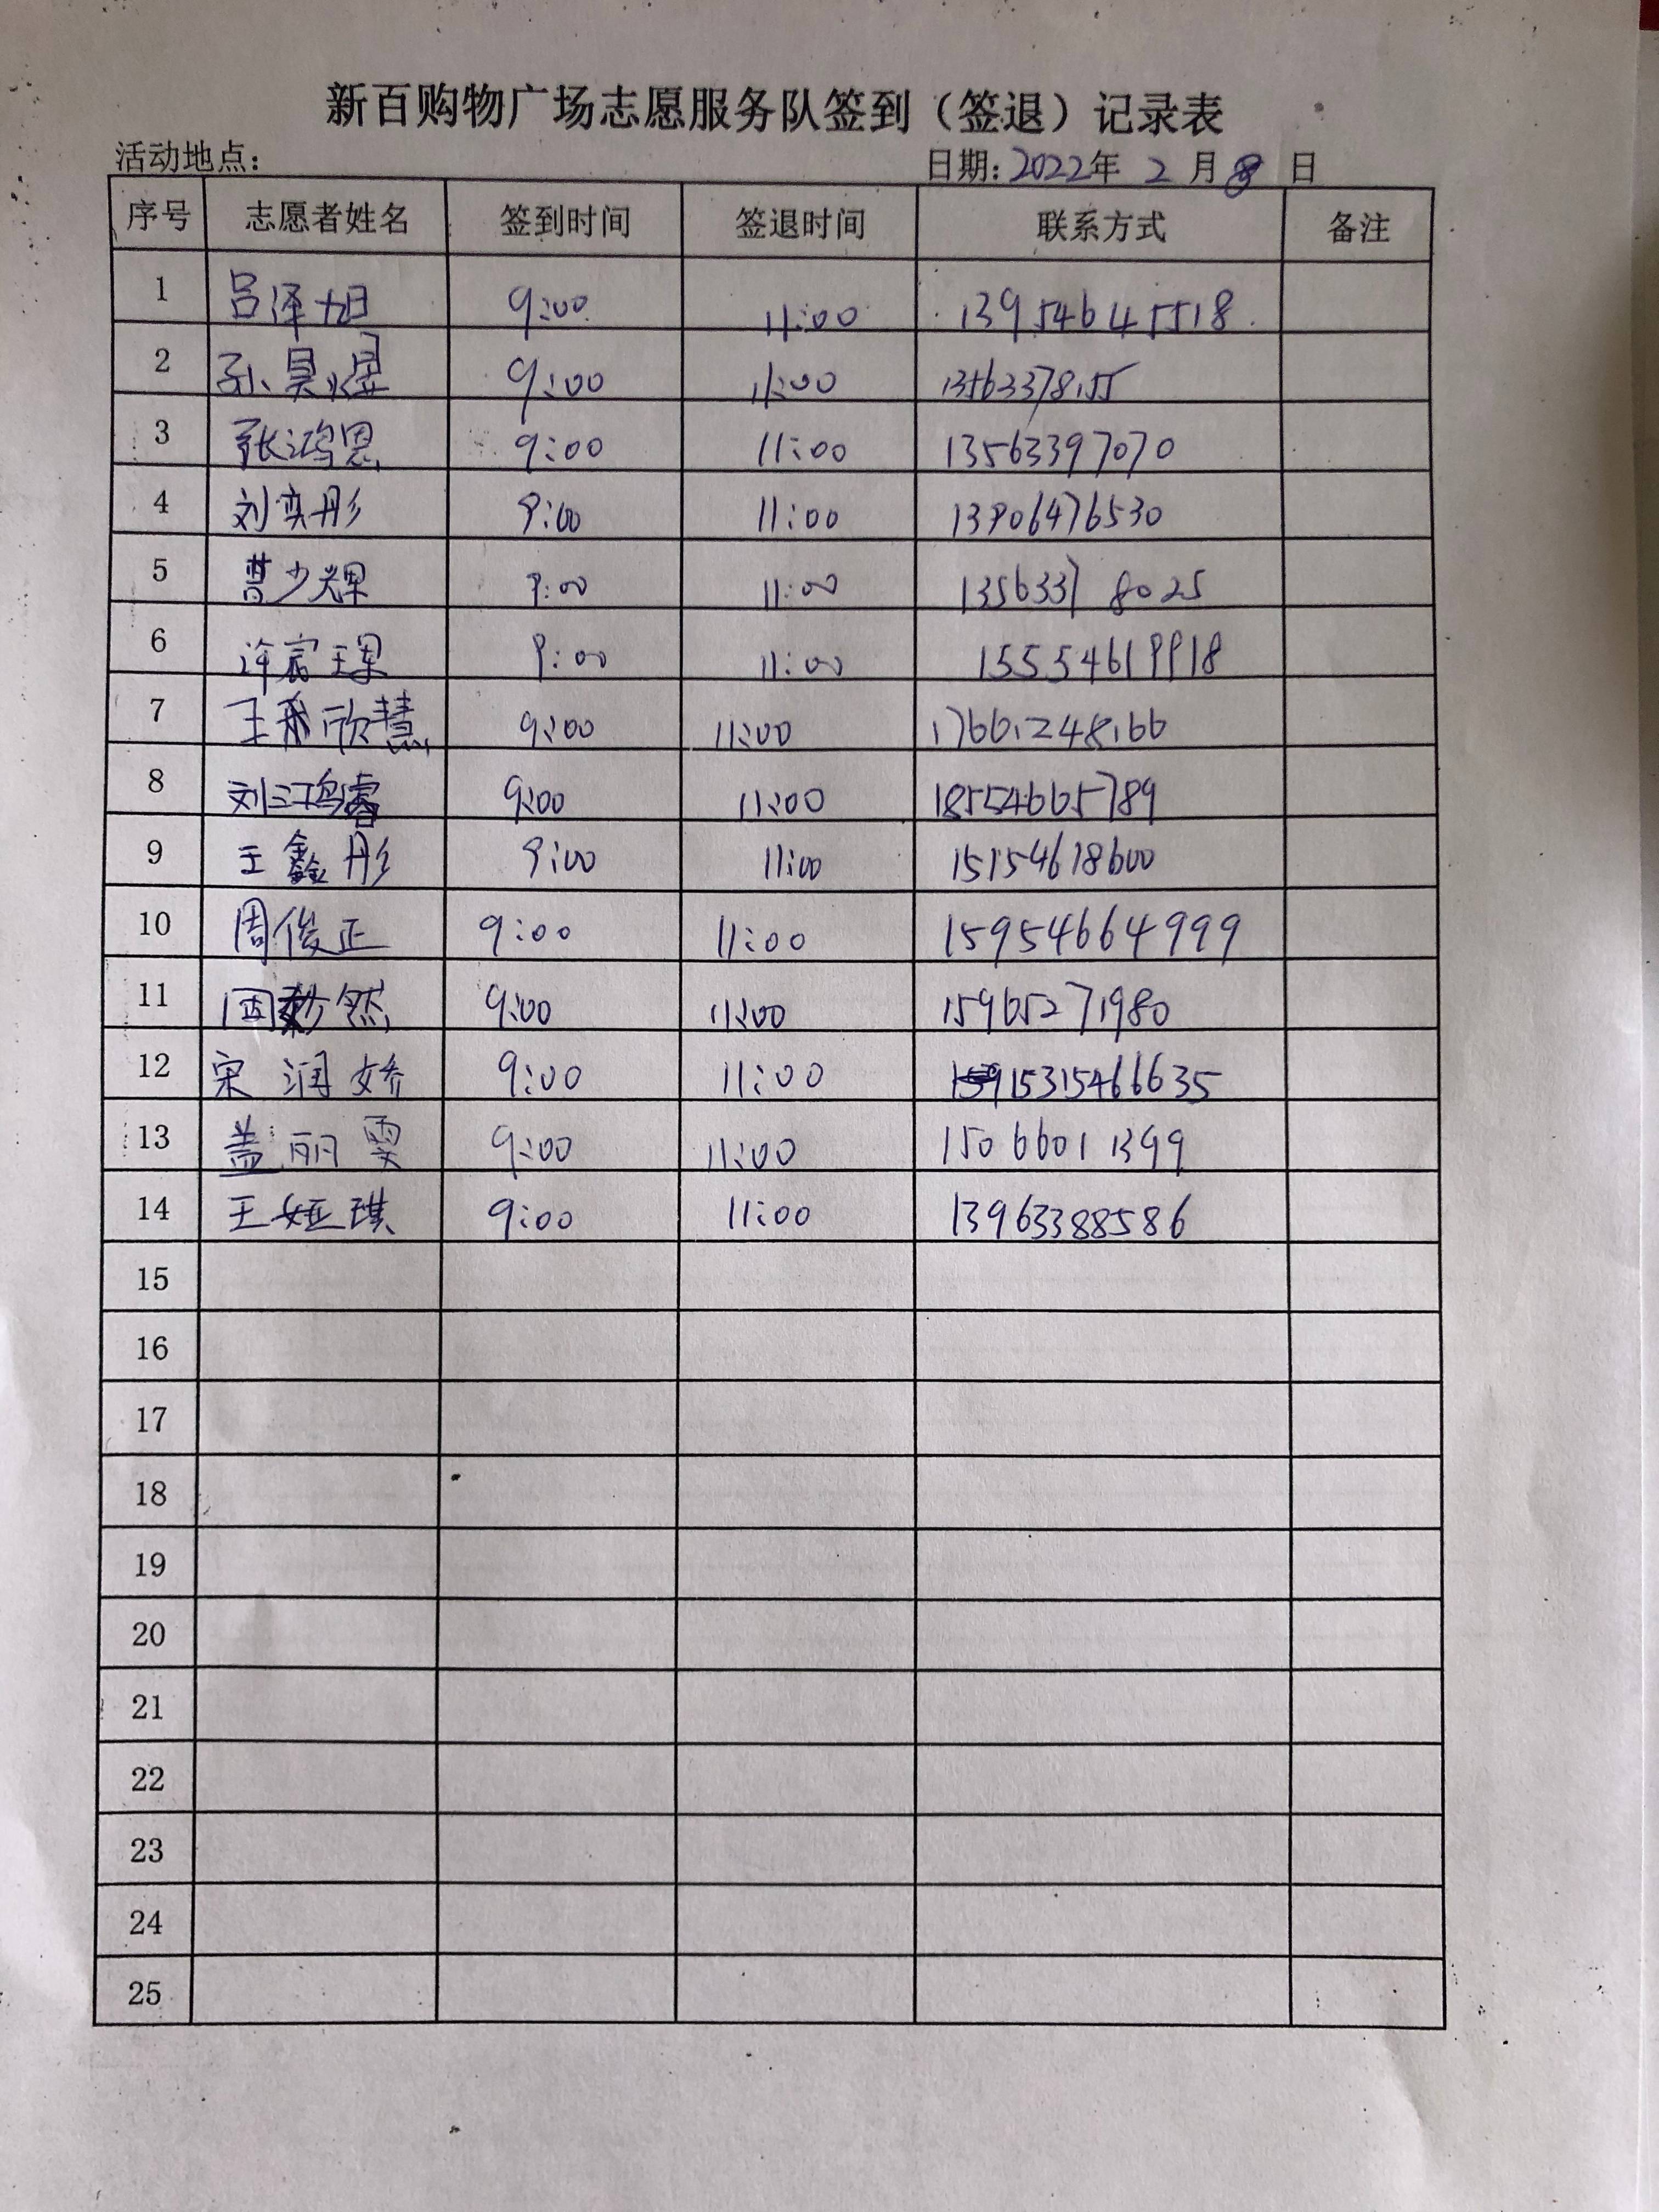 新百购物广场志愿服务队签到（签退）记录表
活动地点： 日期: 2022年 2 月 8 日
序号 志愿者姓名 签到时间 签退时间 联系方式 备注
1 吕泽旭 9:00 11:00 13954645518
2 孙昊煜 9:00 11:00 13563378155
3 张鸿恩 9:00 11:00 13563397070
4 刘奕彤 9:00 11:00 13906476530
5 曹少辉 9:00 11:00 13563378025
6 许宸琿 9:00 11:00 15554619918
7 王欣慧 9:00 11:00 17661248166
8 刘鸿睿 9:00 11:00 18554665789
9 王鑫彤 9:00 11:00 15154618600
10 周俊正 9:00 11:00 15954664999
11 然 9:00 11:00 15965271980
12 宋润娇 9:00 11:00 15315466635
13 盖丽雯 9:00 11:00 15066011399
14 王娅琪 9:00 11:00 13963388586
15
16
17
18
19
20
21
22
23
24
25